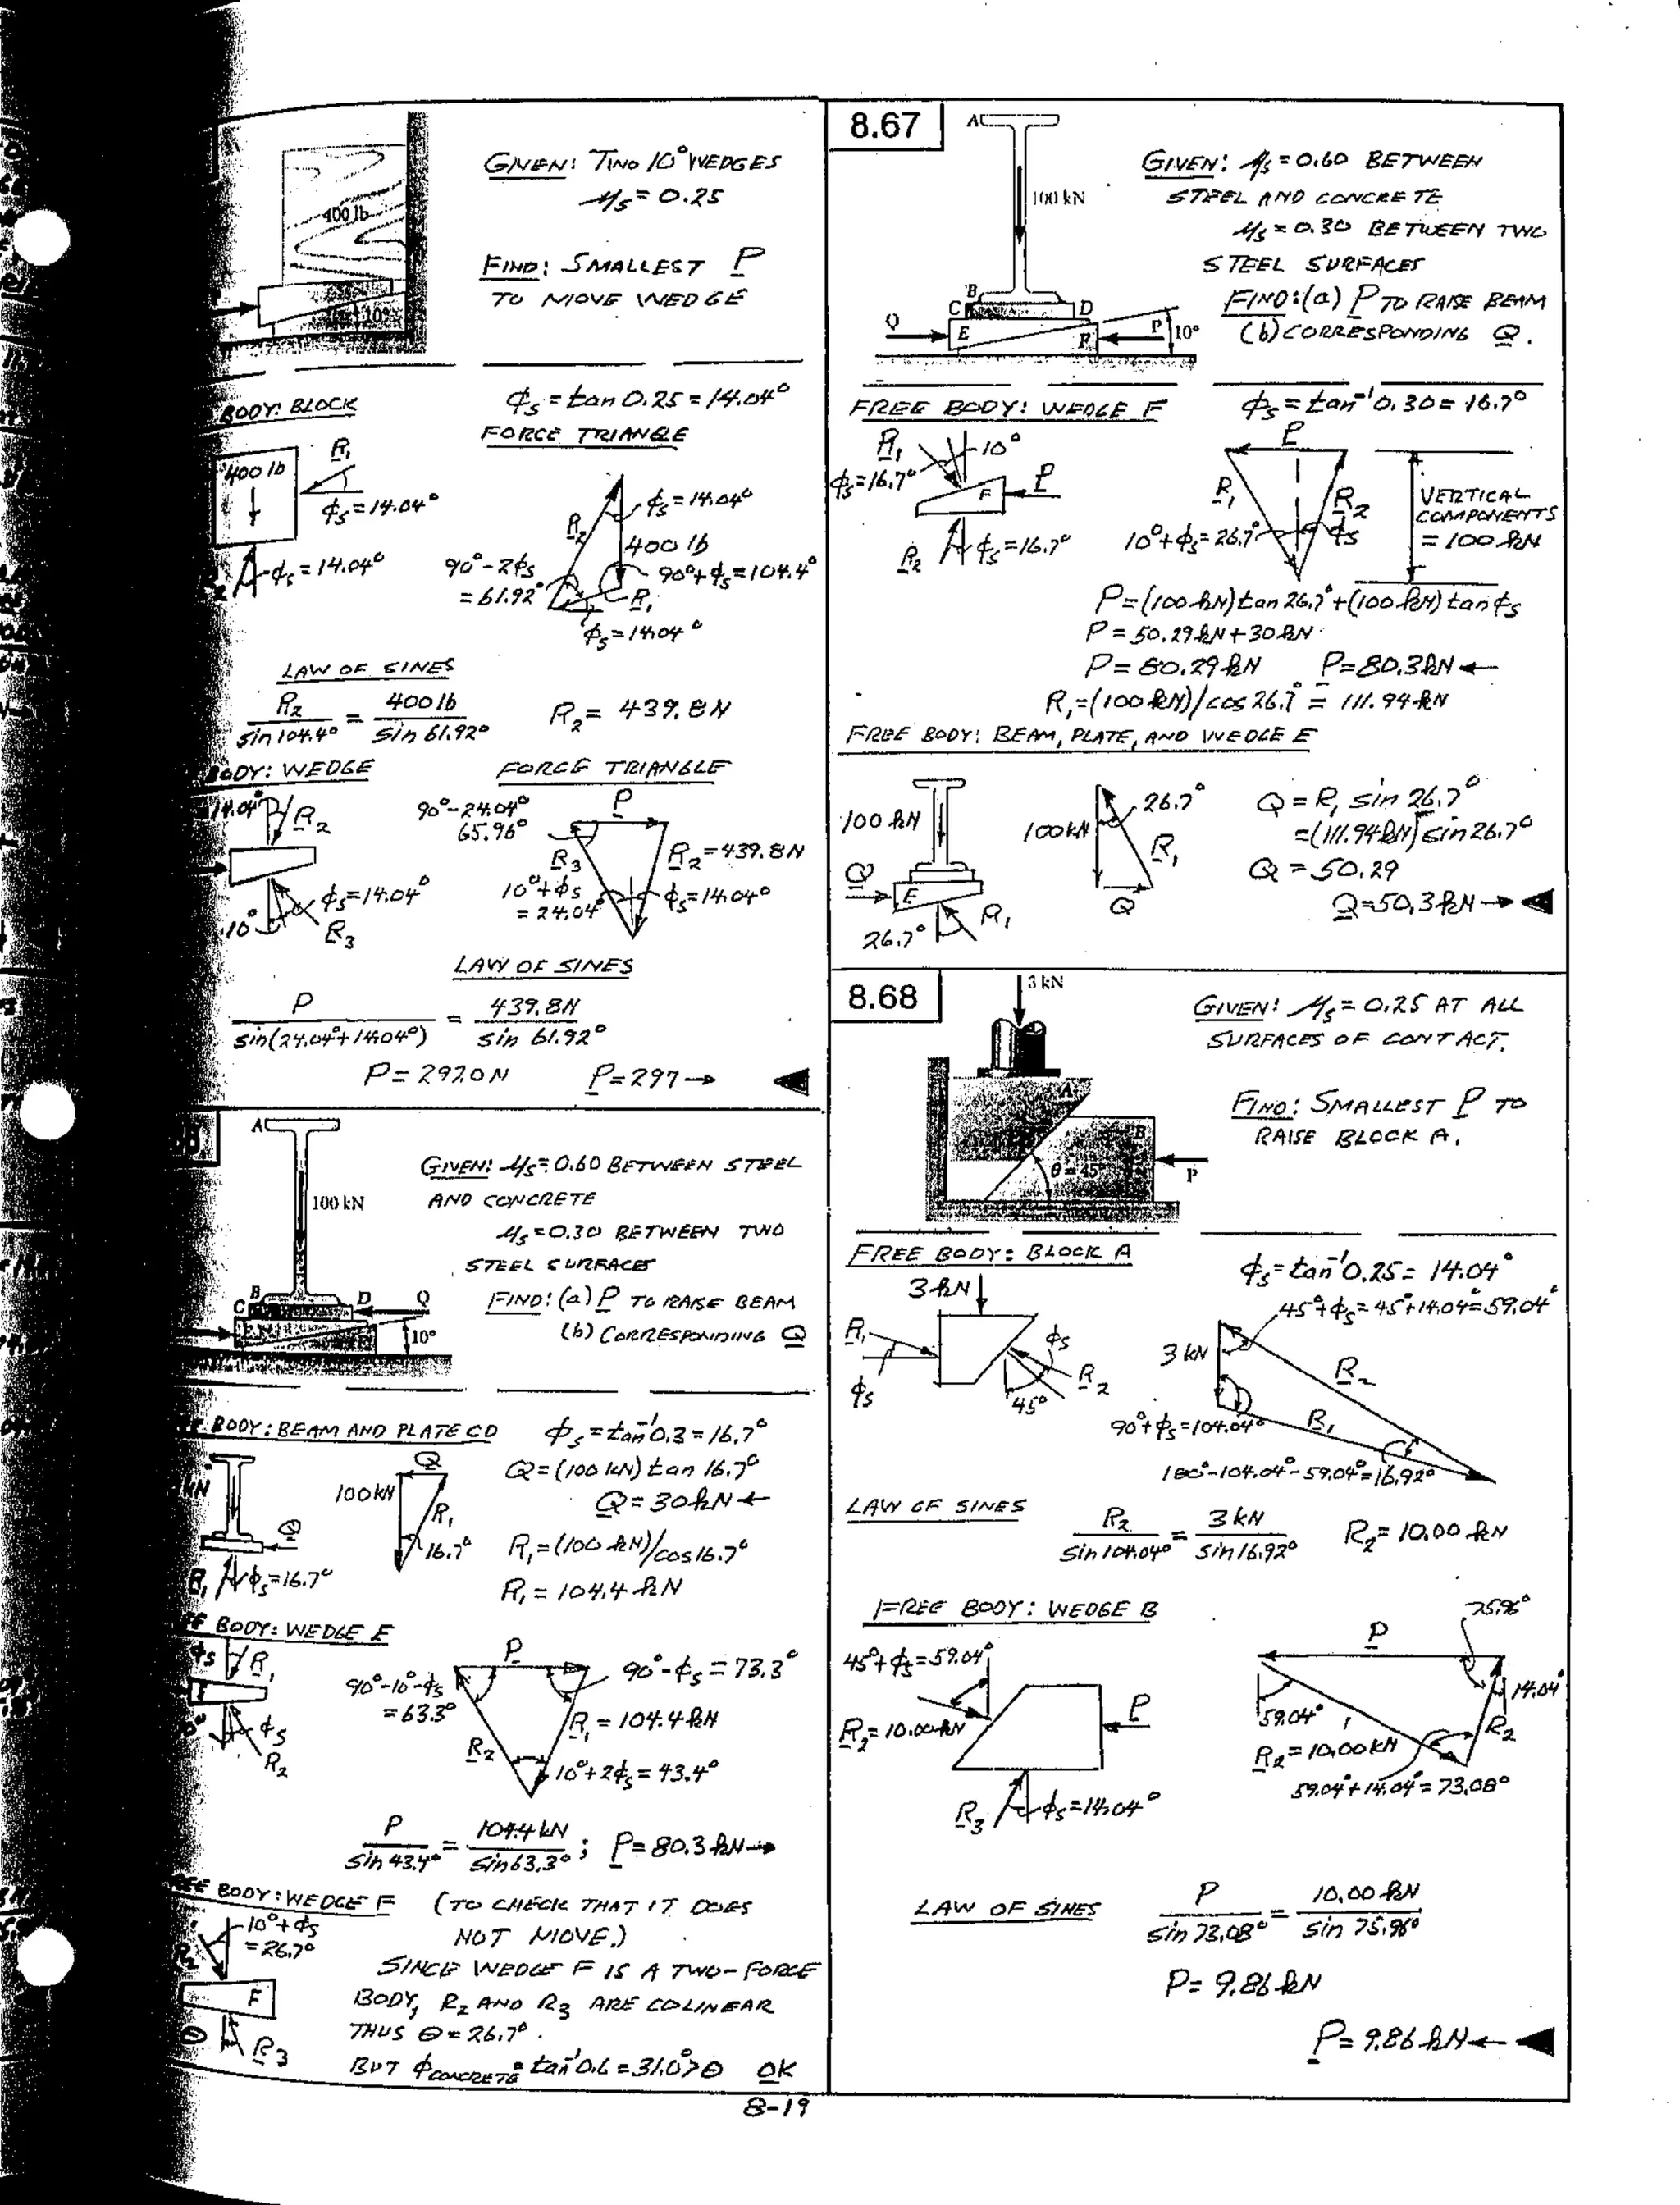 GIVEN: TWO 10° WEDGES
μs = 0.25
FIND: SMALLEST P
TO MOVE WEDGE
400 lb
10°
BODY: BLOCK
φs = tan 0.25 = 14.04°
FORCE TRIANGLE
400 lb
R1
φs = 14.04°
φs = 14.04°
R2
φs = 14.04°
400 lb
90° - 2φs
= 61.92°
90° + φs = 104.4°
R1
φs = 14.04°
LAW OF SINES
R2 / sin 104.4° = 400 lb / sin 61.92°
R2 = 439.8 N
BODY: WEDGE
FORCE TRIANGLE
14.04°
R2
φs = 14.04°
10°
R3
90° - 24.04°
65.96°
P
R3
R2 = 439.8 N
10° + φs
= 24.04°
φs = 14.04°
LAW OF SINES
P / sin(24.04° + 14.04°) = 439.8 N / sin 61.92°
P = 297.0 N
P = 297 →
A
100 kN
B
C
D
Q
10°
GIVEN: μs = 0.60 BETWEEN STEEL
AND CONCRETE
μs = 0.30 BETWEEN TWO
STEEL SURFACES
FIND: (a) P TO RAISE BEAM
(b) CORRESPONDING Q
BODY: BEAM AND PLATE CD
φs = tan⁻¹ 0.3 = 16.7°
kN
Q
R1
φs = 16.7°
100 kN
Q
R1
16.7°
Q = (100 kN) tan 16.7°
Q = 30 kN ←
R1 = (100 kN)/cos 16.7°
R1 = 104.4 kN
BODY: WEDGE E
φs
R1
φs
R2
P
90° - 10° - φs
= 63.3°
90° - φs = 73.3°
R1 = 104.4 kN
R2
10° + 2φs = 43.4°
P / sin 43.4° = 104.4 kN / sin 63.3° ; P = 80.3 kN →
BODY: WEDGE F (TO CHECK THAT IT DOES
NOT MOVE.)
10° + φs
= 26.7°
F
θ
R3
SINCE WEDGE F IS A TWO-FORCE
BODY, R2 AND R3 ARE COLINEAR
THUS θ = 26.7°.
BUT φCONCRETE = tan⁻¹ 0.6 = 31.0° > θ OK
8.67
A
100 kN
B
C
D
Q
E
F
P
10°
GIVEN: μs = 0.60 BETWEEN
STEEL AND CONCRETE
μs = 0.30 BETWEEN TWO
STEEL SURFACES
FIND: (a) P TO RAISE BEAM
(b) CORRESPONDING Q.
FREE BODY: WEDGE F
φs = tan⁻¹ 0.30 = 16.7°
R1
10°
φs = 16.7°
P
F
R2
φs = 16.7°
P
R1
R2
10° + φs = 26.7°
φs
VERTICAL
COMPONENTS
= 100 kN
P = (100 kN) tan 26.7° + (100 kN) tan φs
P = 50.29 kN + 30 kN
P = 80.29 kN P = 80.3 kN ←
R1 = (100 kN)/cos 26.7° = 111.94 kN
FREE BODY: BEAM, PLATE, AND WEDGE E
100 kN
Q
E
26.7°
R1
100 kN
26.7°
R1
Q
Q = R1 sin 26.7°
= (111.94 kN) sin 26.7°
Q = 50.29
Q = 50.3 kN →
8.68
3 kN
A
B
θ = 45°
P
GIVEN: μs = 0.25 AT ALL
SURFACES OF CONTACT.
FIND: SMALLEST P TO
RAISE BLOCK A.
FREE BODY: BLOCK A
φs = tan⁻¹ 0.25 = 14.04°
3 kN
R1
φs
φs
R2
45°
45° + φs = 45° + 14.04° = 59.04°
3 kN
R2
90° + φs = 104.04°
R1
180° - 104.04° - 59.04° = 16.92°
LAW OF SINES
R2 / sin 104.04° = 3 kN / sin 16.92°
R2 = 10.00 kN
FREE BODY: WEDGE B
45° + φs = 59.04°
R2 = 10.00 kN
P
R3
φs = 14.04°
75.96°
P
14.04°
59.04°
R2 = 10.00 kN
R2
59.04° + 14.04° = 73.08°
LAW OF SINES
P / sin 73.08° = 10.00 kN / sin 75.96°
P = 9.86 kN
P = 9.86 kN ←
8-19